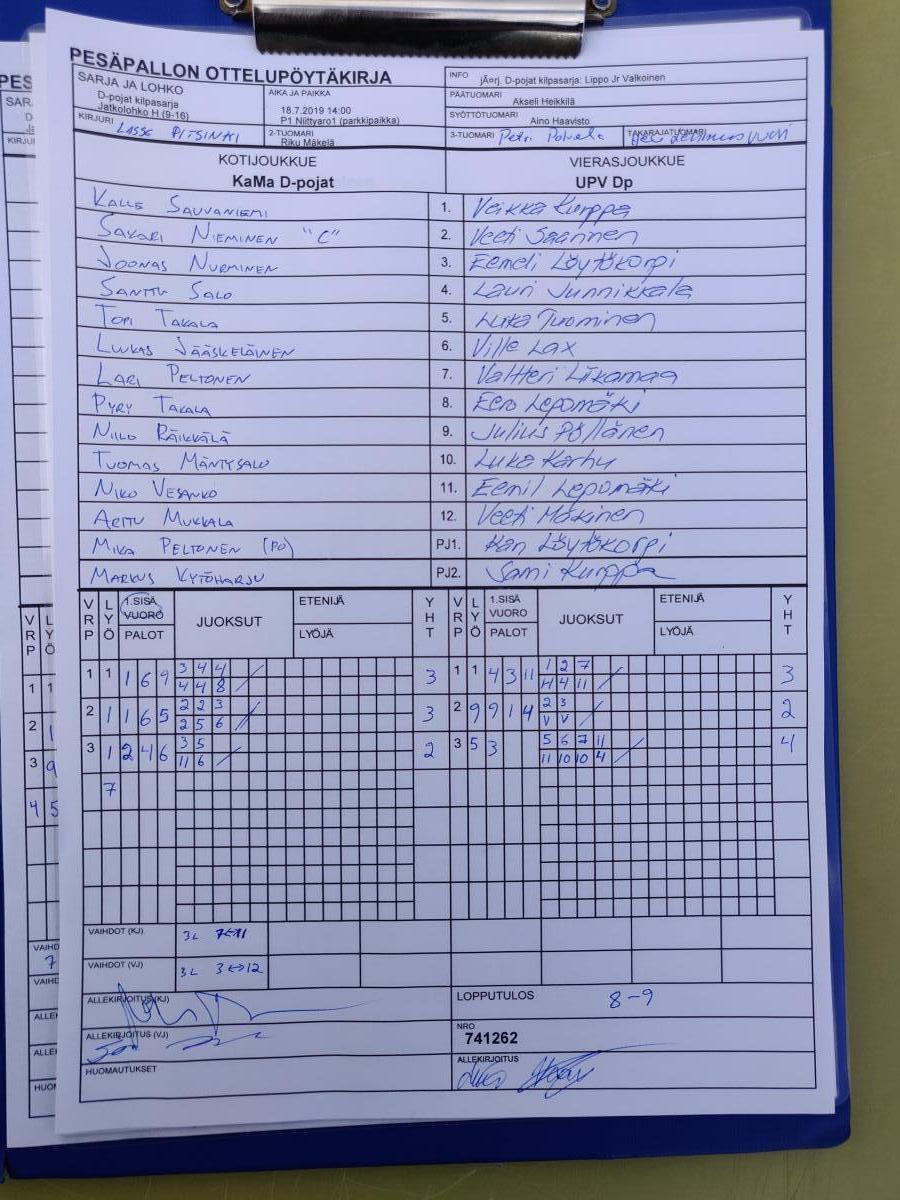 PESÄPALLON OTTELUPÖYTÄKIRJA
SARJA JA LOHKO
D-pojat kilpasarja
Jatkolohko H (9-16)
AIKA JA PAIKKA
18.7.2019 14:00
P1 Niittyaro1 (parkkipaikka)
INFO jÄorj. D-pojat kilpasarja: Lippo Jr Valkoinen
PÄÄTUOMARI Akseli Heikkilä
SYÖTTÖTUOMARI Aino Haavisto
KIRJURI LASSE PITSINKI
2-TUOMARI Riku Mäkelä
3-TUOMARI Petri Polvela TAKARAJATUOMARI
KOTIJOUKKUE VIERASJOUKKUE
KaMa D-pojat UPV Dp
KALLE SAUVANIEMI 1. Veikka Kurppa
SAKARI NIEMINEN "C" 2. Veeti Saarinen
JOONAS NURMINEN 3. Eemeli Löytökorpi
SANTTU SALO 4. Lauri Junnikkala
TOPI TAKALA 5. Luka Tuominen
LUUKAS JÄÄSKELÄINEN 6. Ville Lax
LARI PELTONEN 7. Valtteri Liikamaa
PYRY TAKALA 8. Eero Lepomäki
NIILO RÄIKKÄLÄ 9. Julius Pöllänen
TUOMAS MÄNTYSALO 10. Luka Karhu
NIKO VESANKO 11. Eemil Lepomäki
ARTTU MUKKALA 12. Veeti Mäkinen
MIKA PELTONEN (PO) PJ1. Löytökorpi
MARKUS KYTÖHARJU PJ2. Sami Kurppa
VRP LYÖ 1.SISÄ VUORO PALOT JUOKSUT ETENIJÄ LYÖJÄ YHT VRP LYÖ 1.SISÄ VUORO PALOT JUOKSUT ETENIJÄ LYÖJÄ YHT
1 1 1 6 9 3 4 4 / 3 1 1 4 3 11 1 2 7 / 3
4 4 8 H 4 11
2 1 1 6 5 2 2 3 / 3 2 9 9 1 4 2 3 / 2
2 5 6 V V
3 1 2 4 6 3 5 / 2 3 5 3 5 6 7 11 / 4
11 6 11 10 10 4
7
VAIHDOT (KJ) 3L 7↔11
VAIHDOT (VJ) 3L 3↔12
ALLEKIRJOITUS (KJ)
LOPPUTULOS 8-9
ALLEKIRJOITUS (VJ)
NRO
741262
HUOMAUTUKSET
ALLEKIRJOITUS